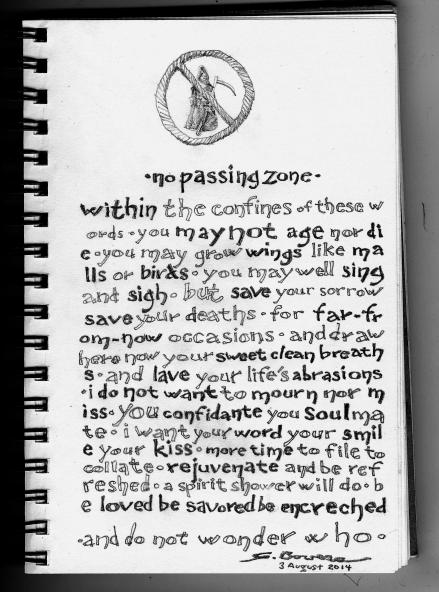 ·no passing zone·
within the confines of these w
ords·you may not age nor di
e·you may grow wings like ma
lls or birds·you may well sing
and sigh·but save your sorrow
save your deaths·for far-fr
om-now occasions·and draw
here now your sweet clean breath
s·and lave your life's abrasions
·i do not want to mourn nor m
iss·you confidante you soulma
te·i want your word your smil
e your kiss·more time to file to
collate·rejuvenate and be ref
reshed·a spirit shower will do·b
e loved be savored be encreched
·and do not wonder who·
3 August 2014